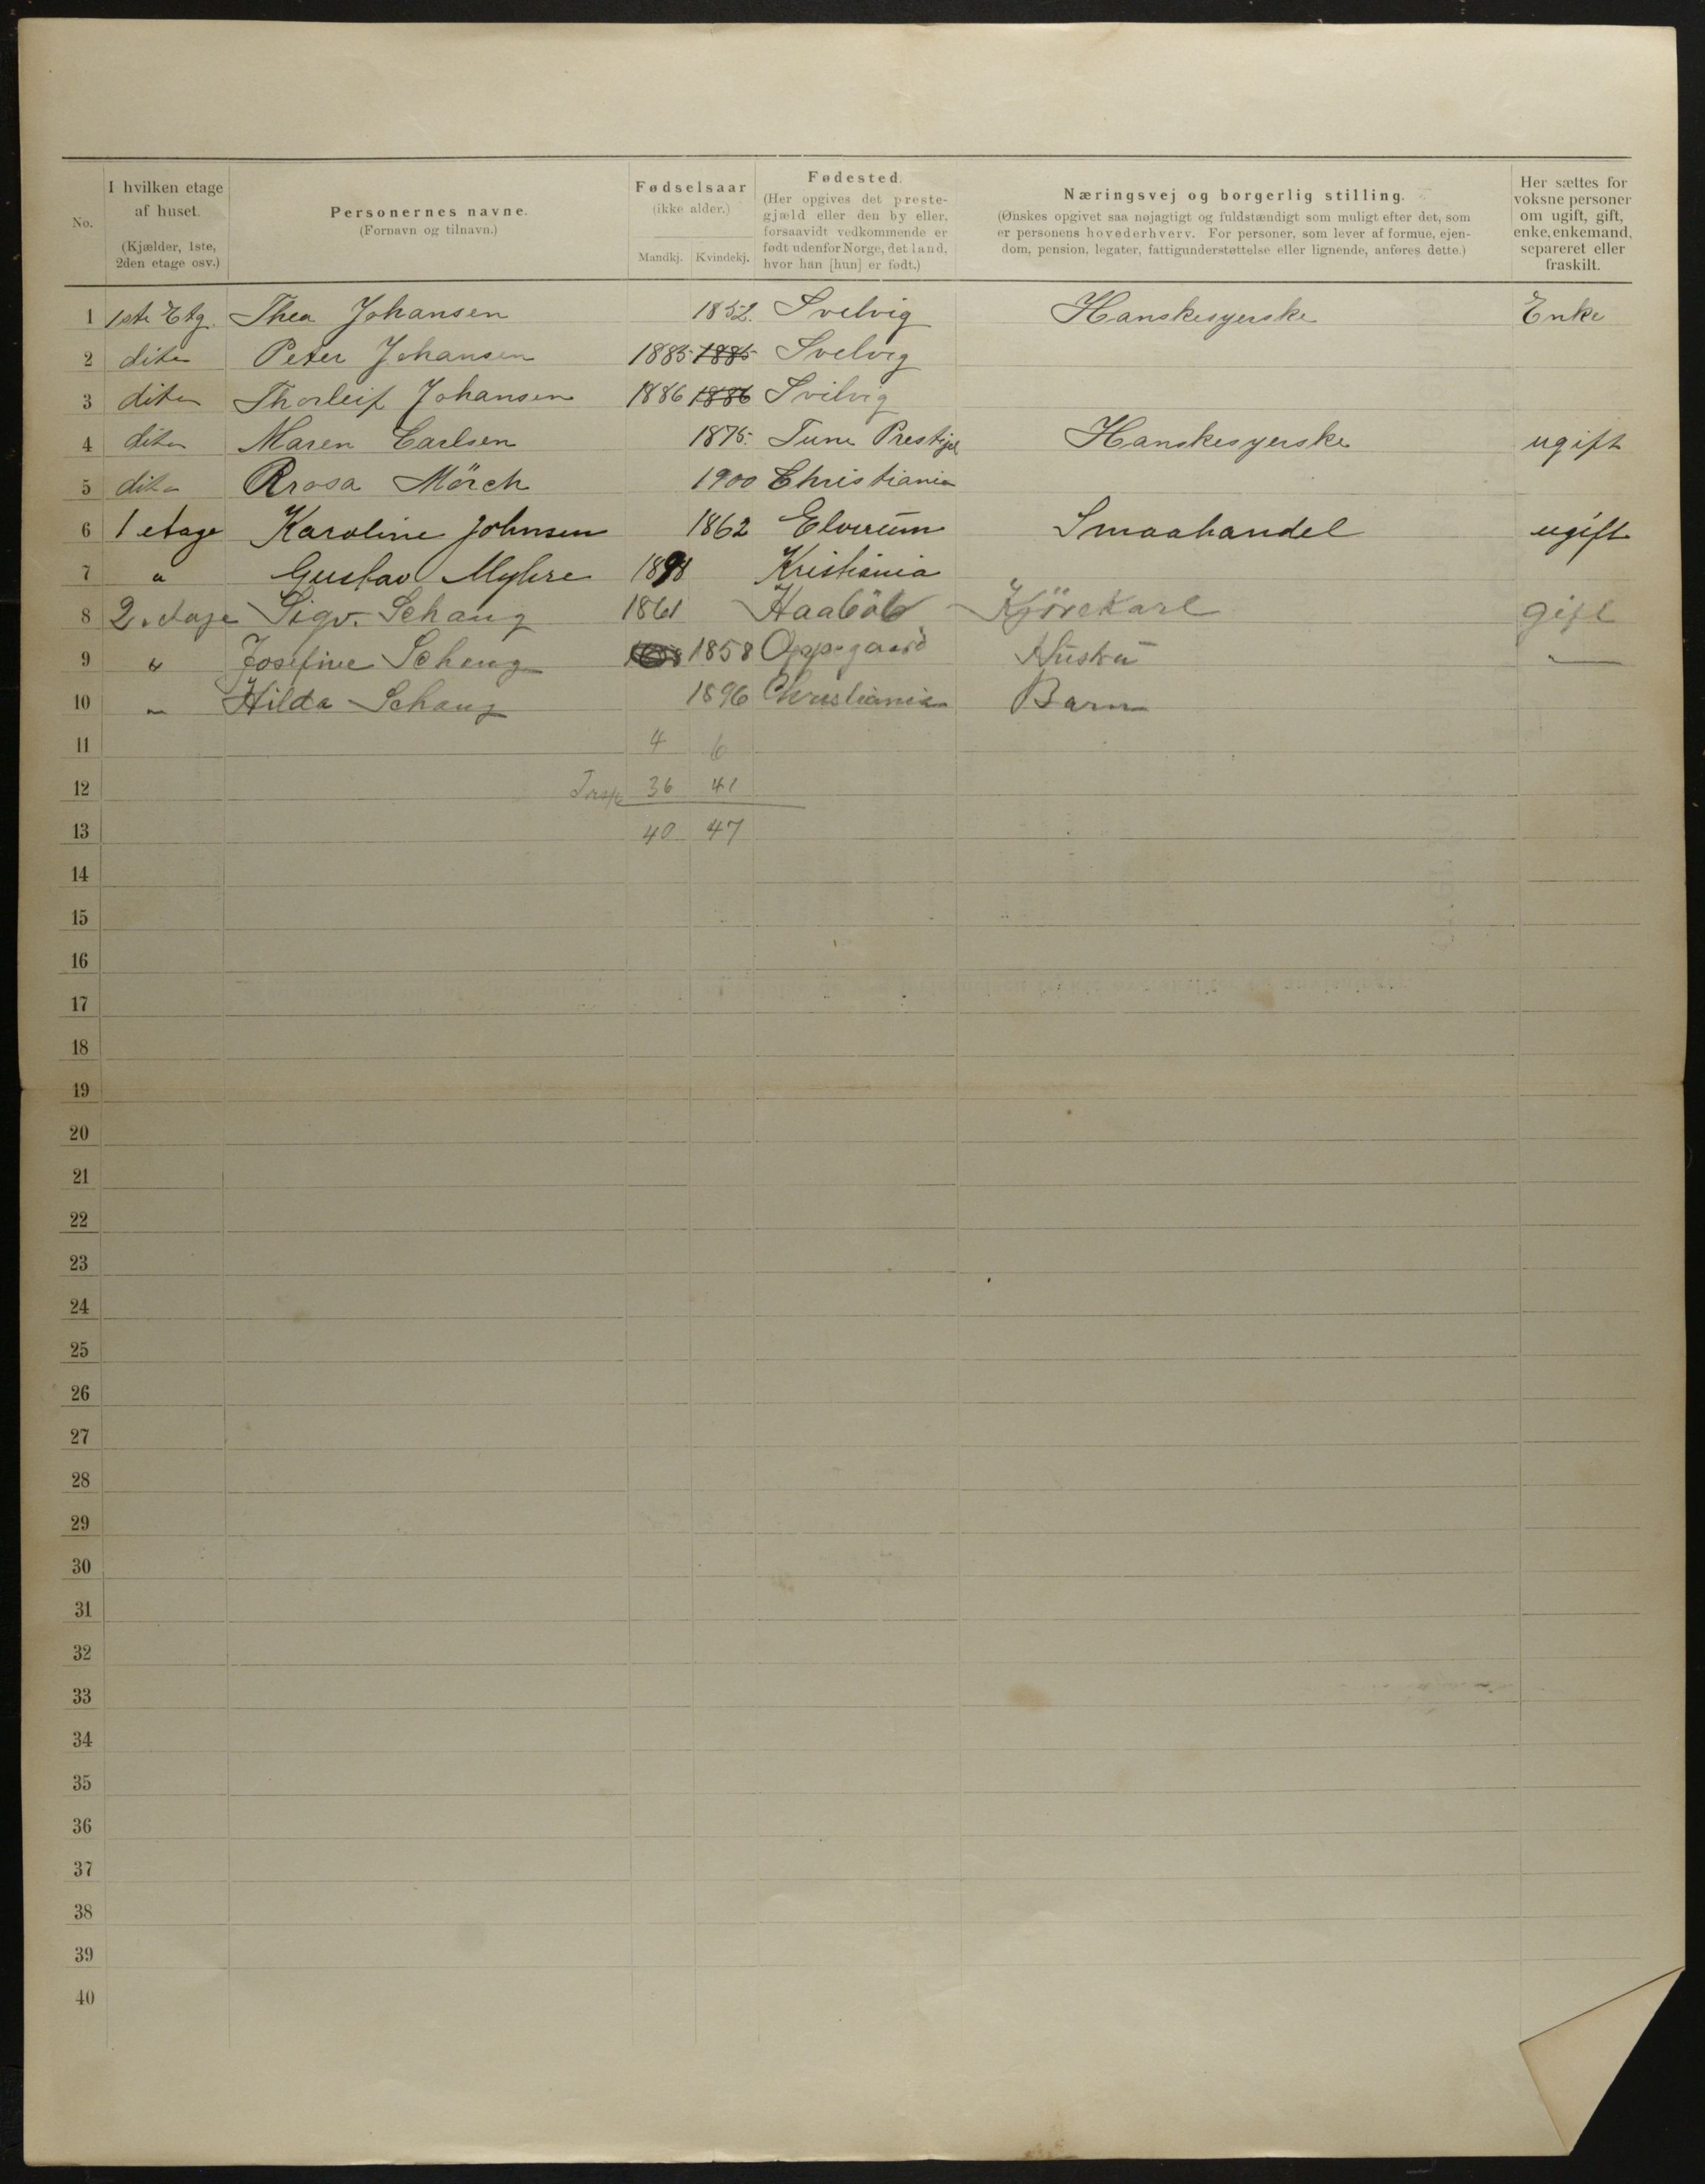 No.
I hvilken etage af huset.
(Kjælder, 1ste, 2den etage osv.)
Personernes navne.
(Fornavn og tilnavn.)
Fødselsaar
(ikke alder.)
Mandkj. Kvindekj.
Fødested.
(Her opgives det preste-
gjæld eller den by eller,
forsaavidt vedkommende er
født udenfor Norge, det land,
hvor han [hun] er født.)
Næringsvej og borgerlig stilling.
(Ønskes opgivet saa nøjagtigt og fuldstændigt som muligt efter det, som
er personens hovederhverv. For personer, som lever af formue, ejen-
dom, pension, legater, fattigunderstøttelse eller lignende, anføres dette.)
Her sættes for
voksne personer
om ugift, gift,
enke, enkemand,
separeret eller
fraskilt.
1 1ste Etg. Thea Johansen 1852. Svelvig Hanskesyerske Enke
2 dito Peter Johansen 1885 1885 Svelvig
3 dito Thorleif Johansen 1886 1886 Svilvig
4 dito Maren Carlsen 1875. Tune Prestgjel Hanskesyerske ugift
5 dito Rrosa Mörch 1900 Christiania
6 1 etage Karoline Johnsen 1862 Elverum Smaahandel ugift
7 " Gustav Myhre 1898 Kristiania
8 2. etage Sigv. Schaug 1861 Haaböl Kjörekarl gift
9 " Josefine Schaug 1858 Oppegaard Hustru —
10 " Hilda Schaug 1896 Christiania Barn
11 4 6
12 Trsp 36 41
13 40 47
14
15
16
17
18
19
20
21
22
23
24
25
26
27
28
29
30
31
32
33
34
35
36
37
38
39
40